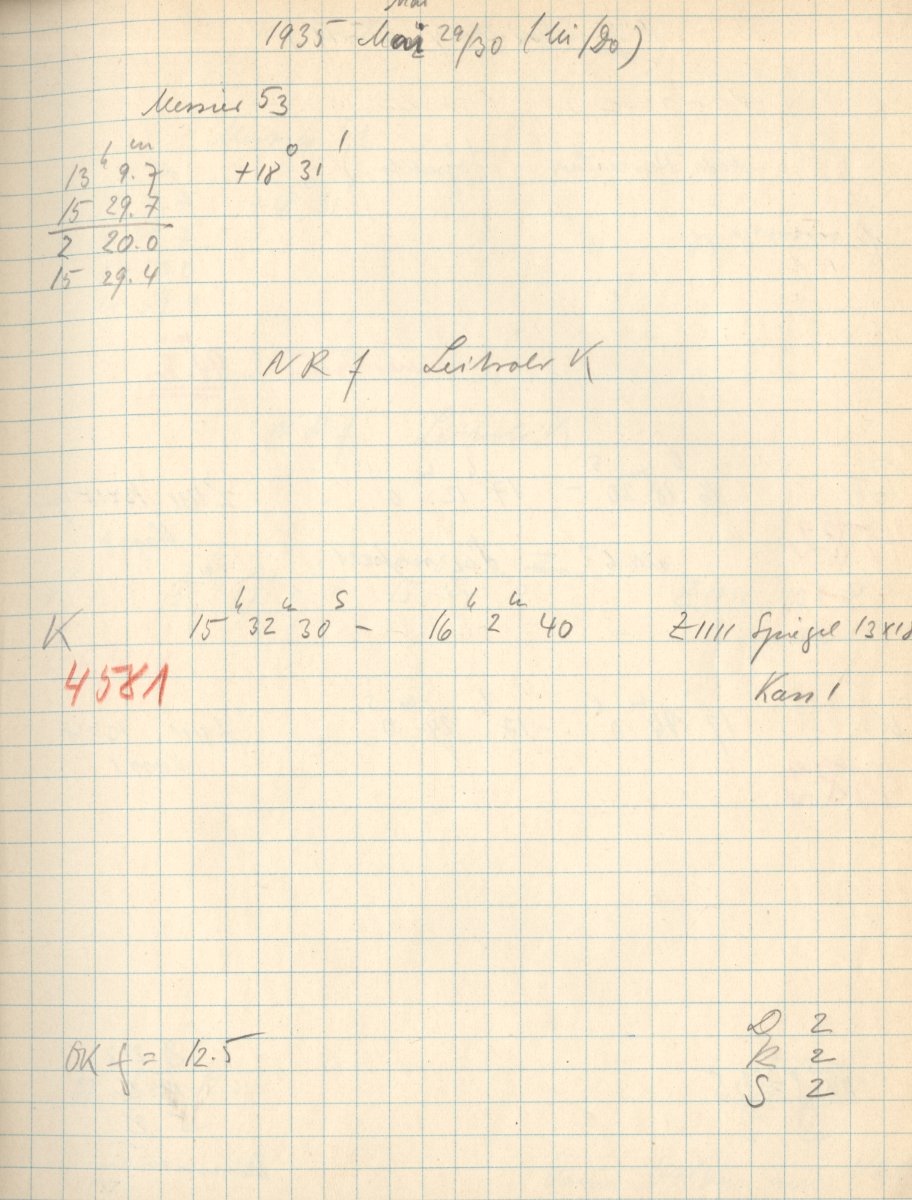 Mai
1935 Mai 29/30 (Mi/Do)
Messier 53
13h 9.7m +18° 31'
15 29.7
2 20.0
15 29.4
NR f Leitrohr K
K 15h 32m 30s – 16h 2m 40 Z1111 Spiegel 13x18
4581 Kass 1
OK f = 12.5
D 2
R 2
S 2